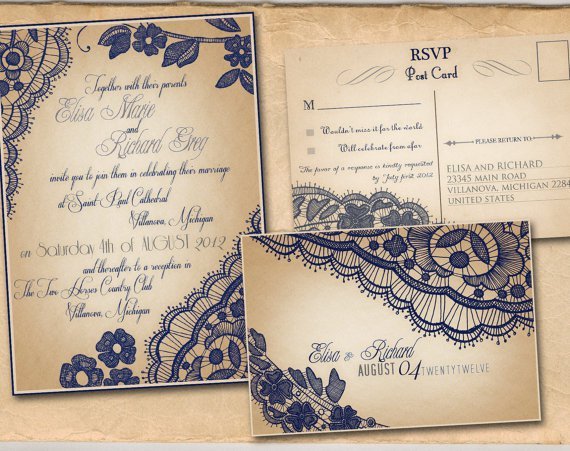 Together with their parents
Elisa Marie
and
Richard Greg
invite you to join them in celebrating their marriage
at Saint Paul Cathedral
Villanova, Michigan
on Saturday 4th of AUGUST 2012
and thereafter to a reception in
The Two Horses Country Club
Villanova, Michigan
RSVP
Post Card
M
Wouldn't miss it for the world
Will celebrate from afar
The favor of a response is kindly requested
by July first 2012
PLEASE RETURN TO:
ELISA AND RICHARD
23345 MAIN ROAD
VILLANOVA, MICHIGAN 2284
UNITED STATES
Elisa & Richard
AUGUST 04 TWENTYTWELVE